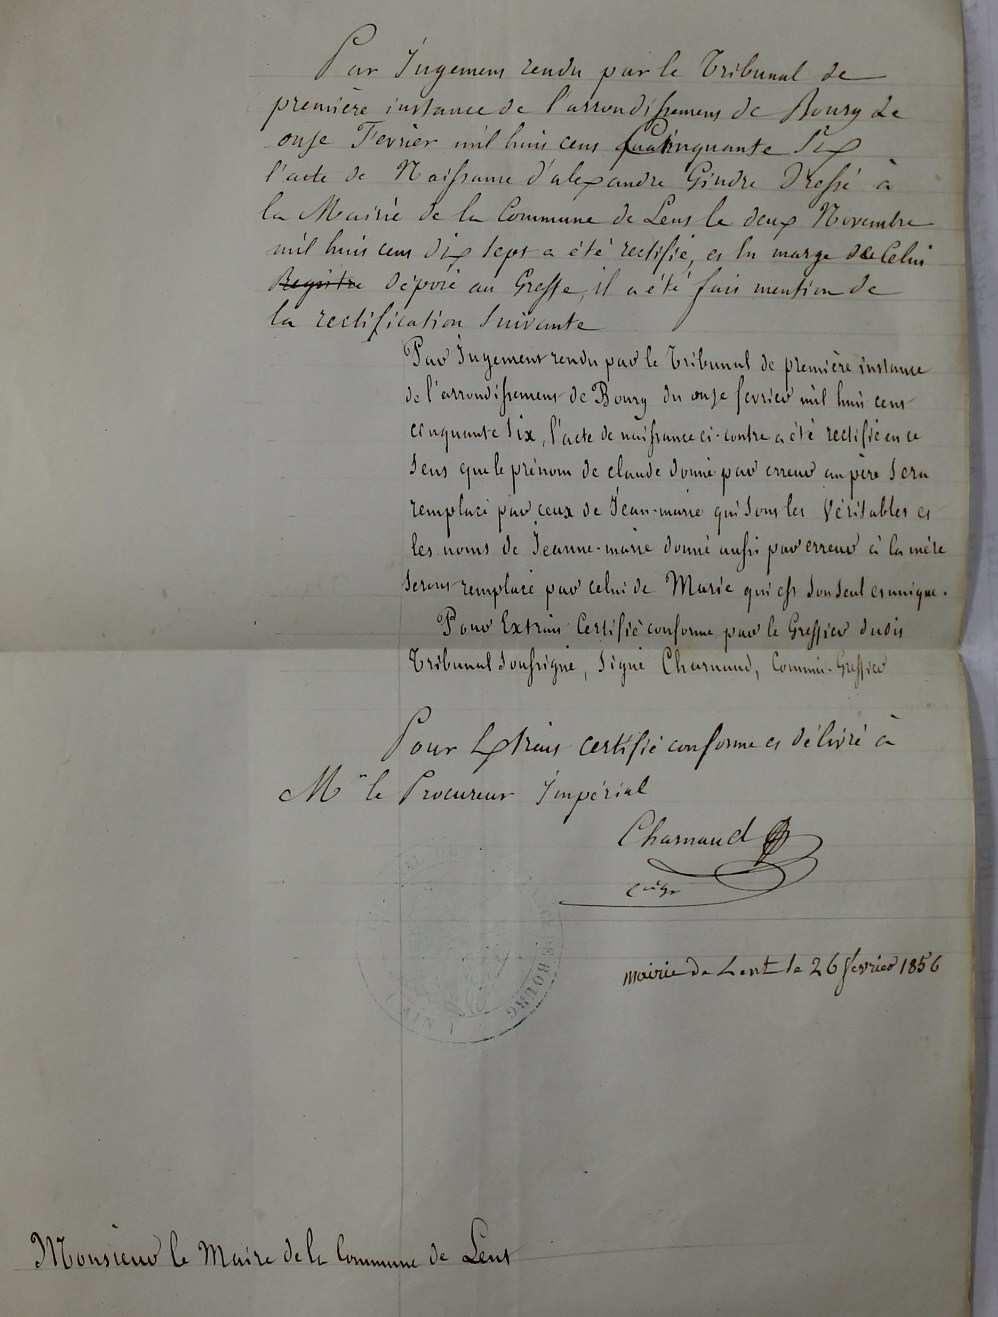 Par Jugement rendu par le Tribunal de
première instance de l'arrondissement de Bourg Le
onze Fevrier mil huit cent Cinquante Six
l'acte de Naissance d'alexandre Gindre Dressé à
la Mairie de la Commune de Lent le deux Novembre
mil huit cent dix sept a été rectifié, et En marge de Celui
Registre déposé au Greffe, il a été fait mention de
la rectification Suivante
Par Jugement rendu par le Tribunal de première instance
de l'arrondissement de Bourg du onze fevrier mil huit cent
cinquante Six, l'acte de naissance ci-contre a été rectifié en ce
Sens que le prénom de claude donné par erreur au père Sera
remplacé par ceux de Jean-marie qui Sont les Véritables et
les noms de Jeanne-marie donné aussi par erreur à la mère
Seront remplacé par celui de Marie qui est Son Seul et unique.
Pour Extrait Certifié conforme par le Greffier dudit
Tribunal Soussigné, Signé Charnaud, Commis-Greffier
Pour Extrait certifié conforme et délivré à
Mr le Procureur Impérial
Charnaud
cis gr
mairie de Lent le 26 fevrier 1856
DE BOURG
AIN
Monsieur le Maire de la Commune de Lent